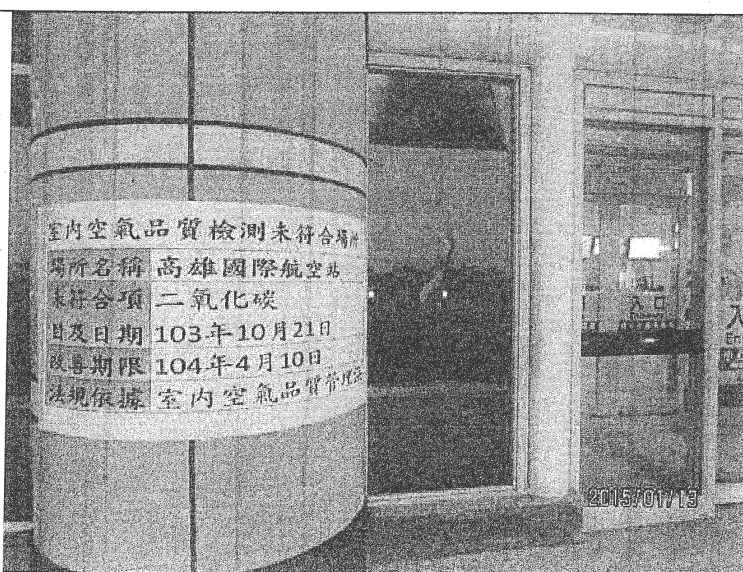 室內空氣品質檢測未符合場所
場所名稱 高雄國際航空站
未符合項 二氧化碳
目及日期 103年10月21日
改善期限 104年4月10日
法規依據 室內空氣品質管理法
入口
入
En
2015/01/13